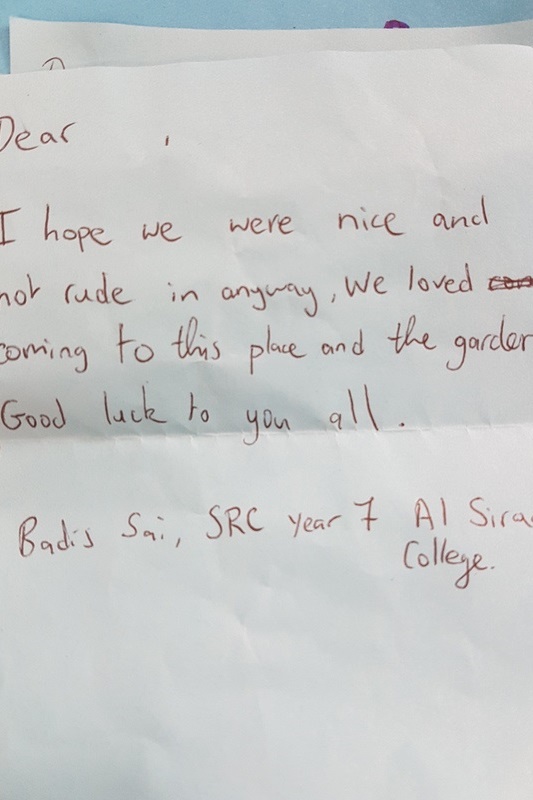 Dear ,
I hope we were nice and
not rude in anyway, we loved
coming to this place and the garden
Good luck to you all.
Badis Sai, SRC year 7 Al Sira
College.